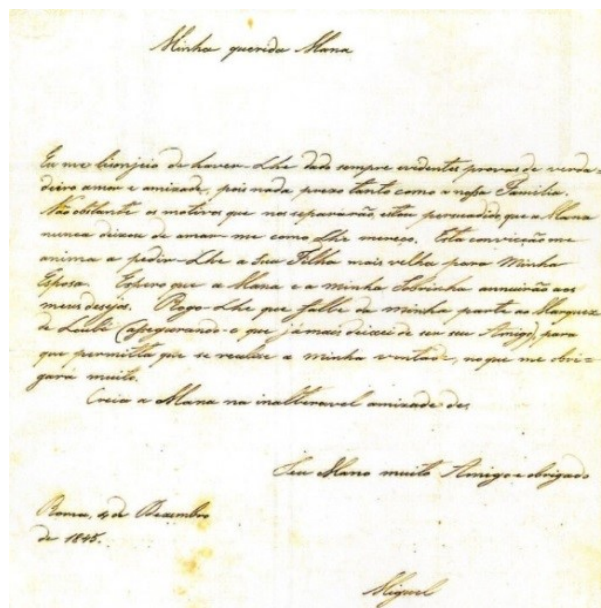 Minha querida Mana
Eu me lisonjeio de haver-Lhe dado sempre evidentes provas de verda-
deiro amor e amizade, pois nada prezo tanto como a nossa Familia.
Não obstante os motivos que nos separárão, estou persuadido que a Mana
nunca deixou de amar-me como Lhe mereço. Esta convicção me
anima a pedir-Lhe a Sua Filha mais velha para Minha
Esposa. Espero que a Mana e a minha Sobrinha annuirão aos
meus desejos. Rogo-Lhe que falle da minha parte ao Marquez
de Loulé (assegurando-o que jámais deixei de ser seu Amigo), para
que permitta que se realize a minha vontade, no que me obri-
gará muito.
Creia a Mana na inalteravel amizade de
Seu Mano muito Amigo e obrigado
Roma, 4 de Dezembro
de 1845.
Miguel